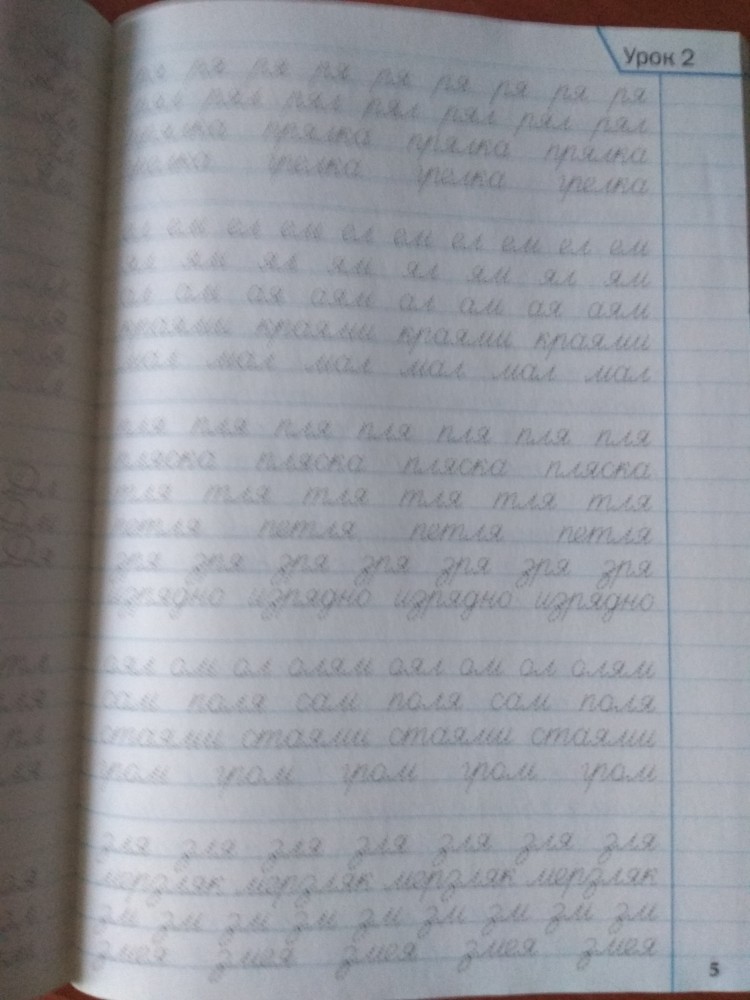 Урок 2
ря ря ря ря ря ря ря ря ря
рял рял рял рял рял рял рял
прялка прялка прялка прялка
грелка грелка грелка грелка
ел ем ел ем ел ем ел ем ел ем
ял ям ял ям ял ям ял ям
ал ам ая аям ал ам ая аям
краями краями краями краями
мал мал мал мал мал мал
пля пля пля пля пля пля пля
пляска пляска пляска пляска
тля тля тля тля тля тля
петля петля петля петля
зря зря зря зря зря зря зря
изрядно изрядно изрядно изрядно
оял ом ол олям оял ом ол олям
сам поля сам поля сам поля
стаями стаями стаями стаями
гром гром гром гром гром
зля зля зля зля зля зля зля
мерзляк мерзляк мерзляк мерзляк
зм зм зм зм зм зм зм зм зм
змея змея змея змея змея
5